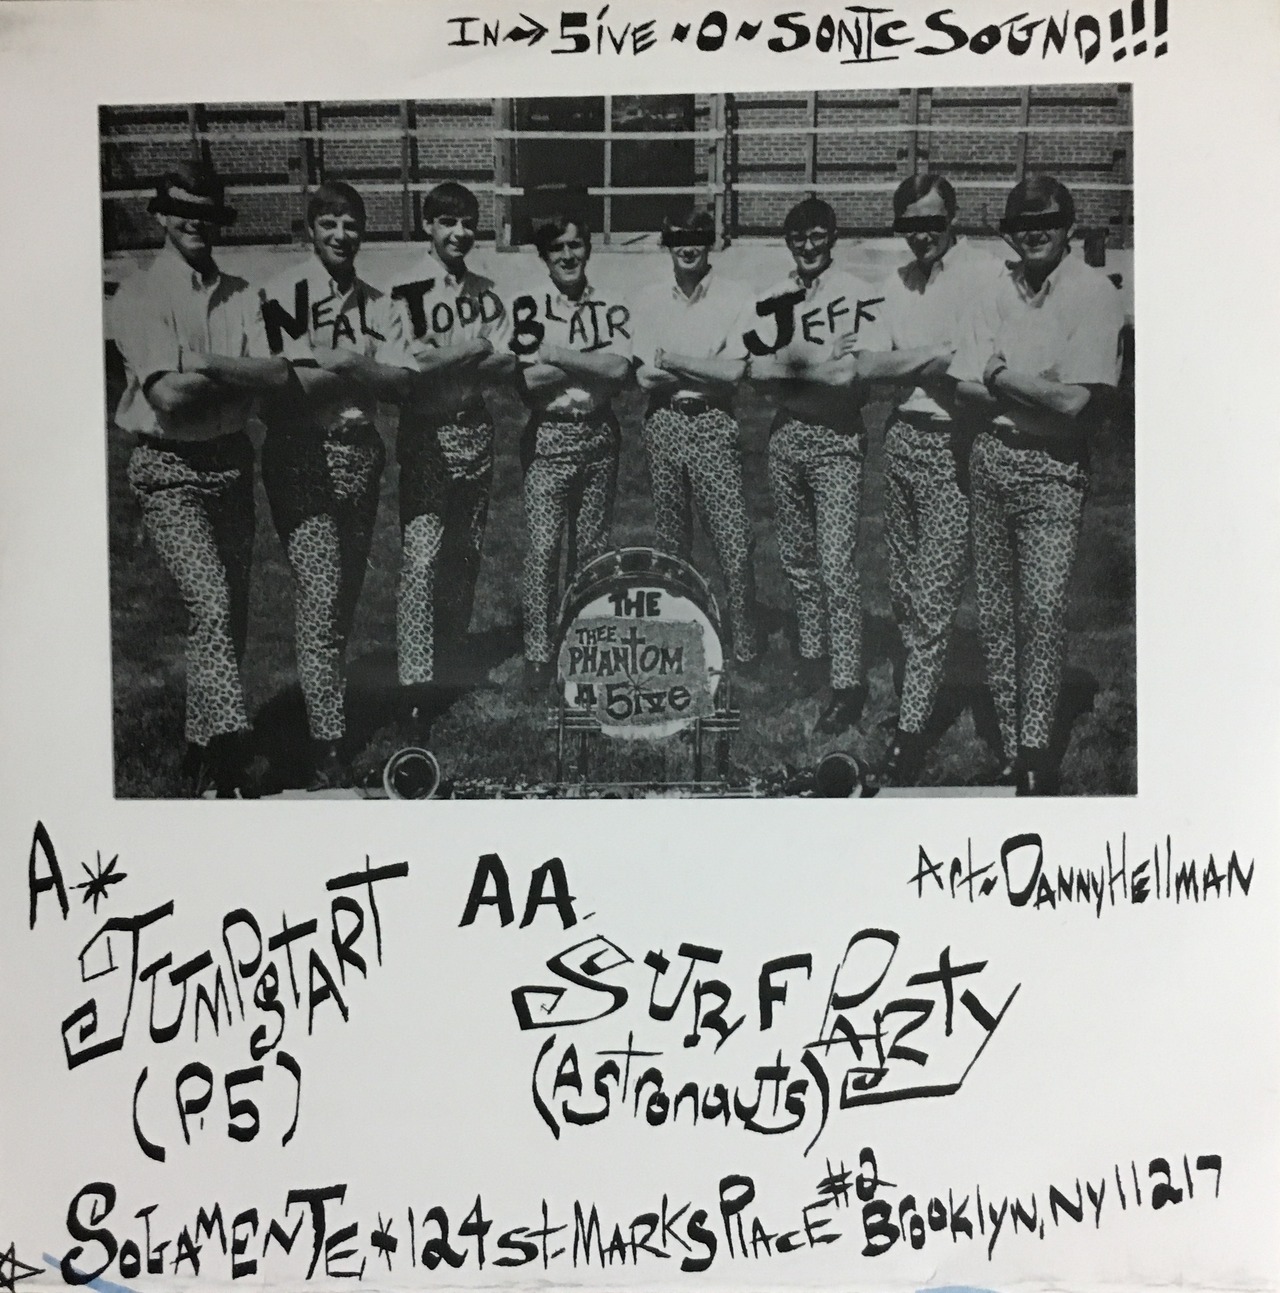 IN → 5IVE ~O~ SONIC SOUND!!!
NEAL TODD BLAIR JEFF
THE
THEE
PHANTOM
5ive
A* AA
Art~ DANNY HEllMAN
JUMPSTART
SURF PARTY
(P.5)
(Astronauts)
SOLAMENTE * 124 St. MARKS PlACE #2 BROOKlyN, Ny 11217